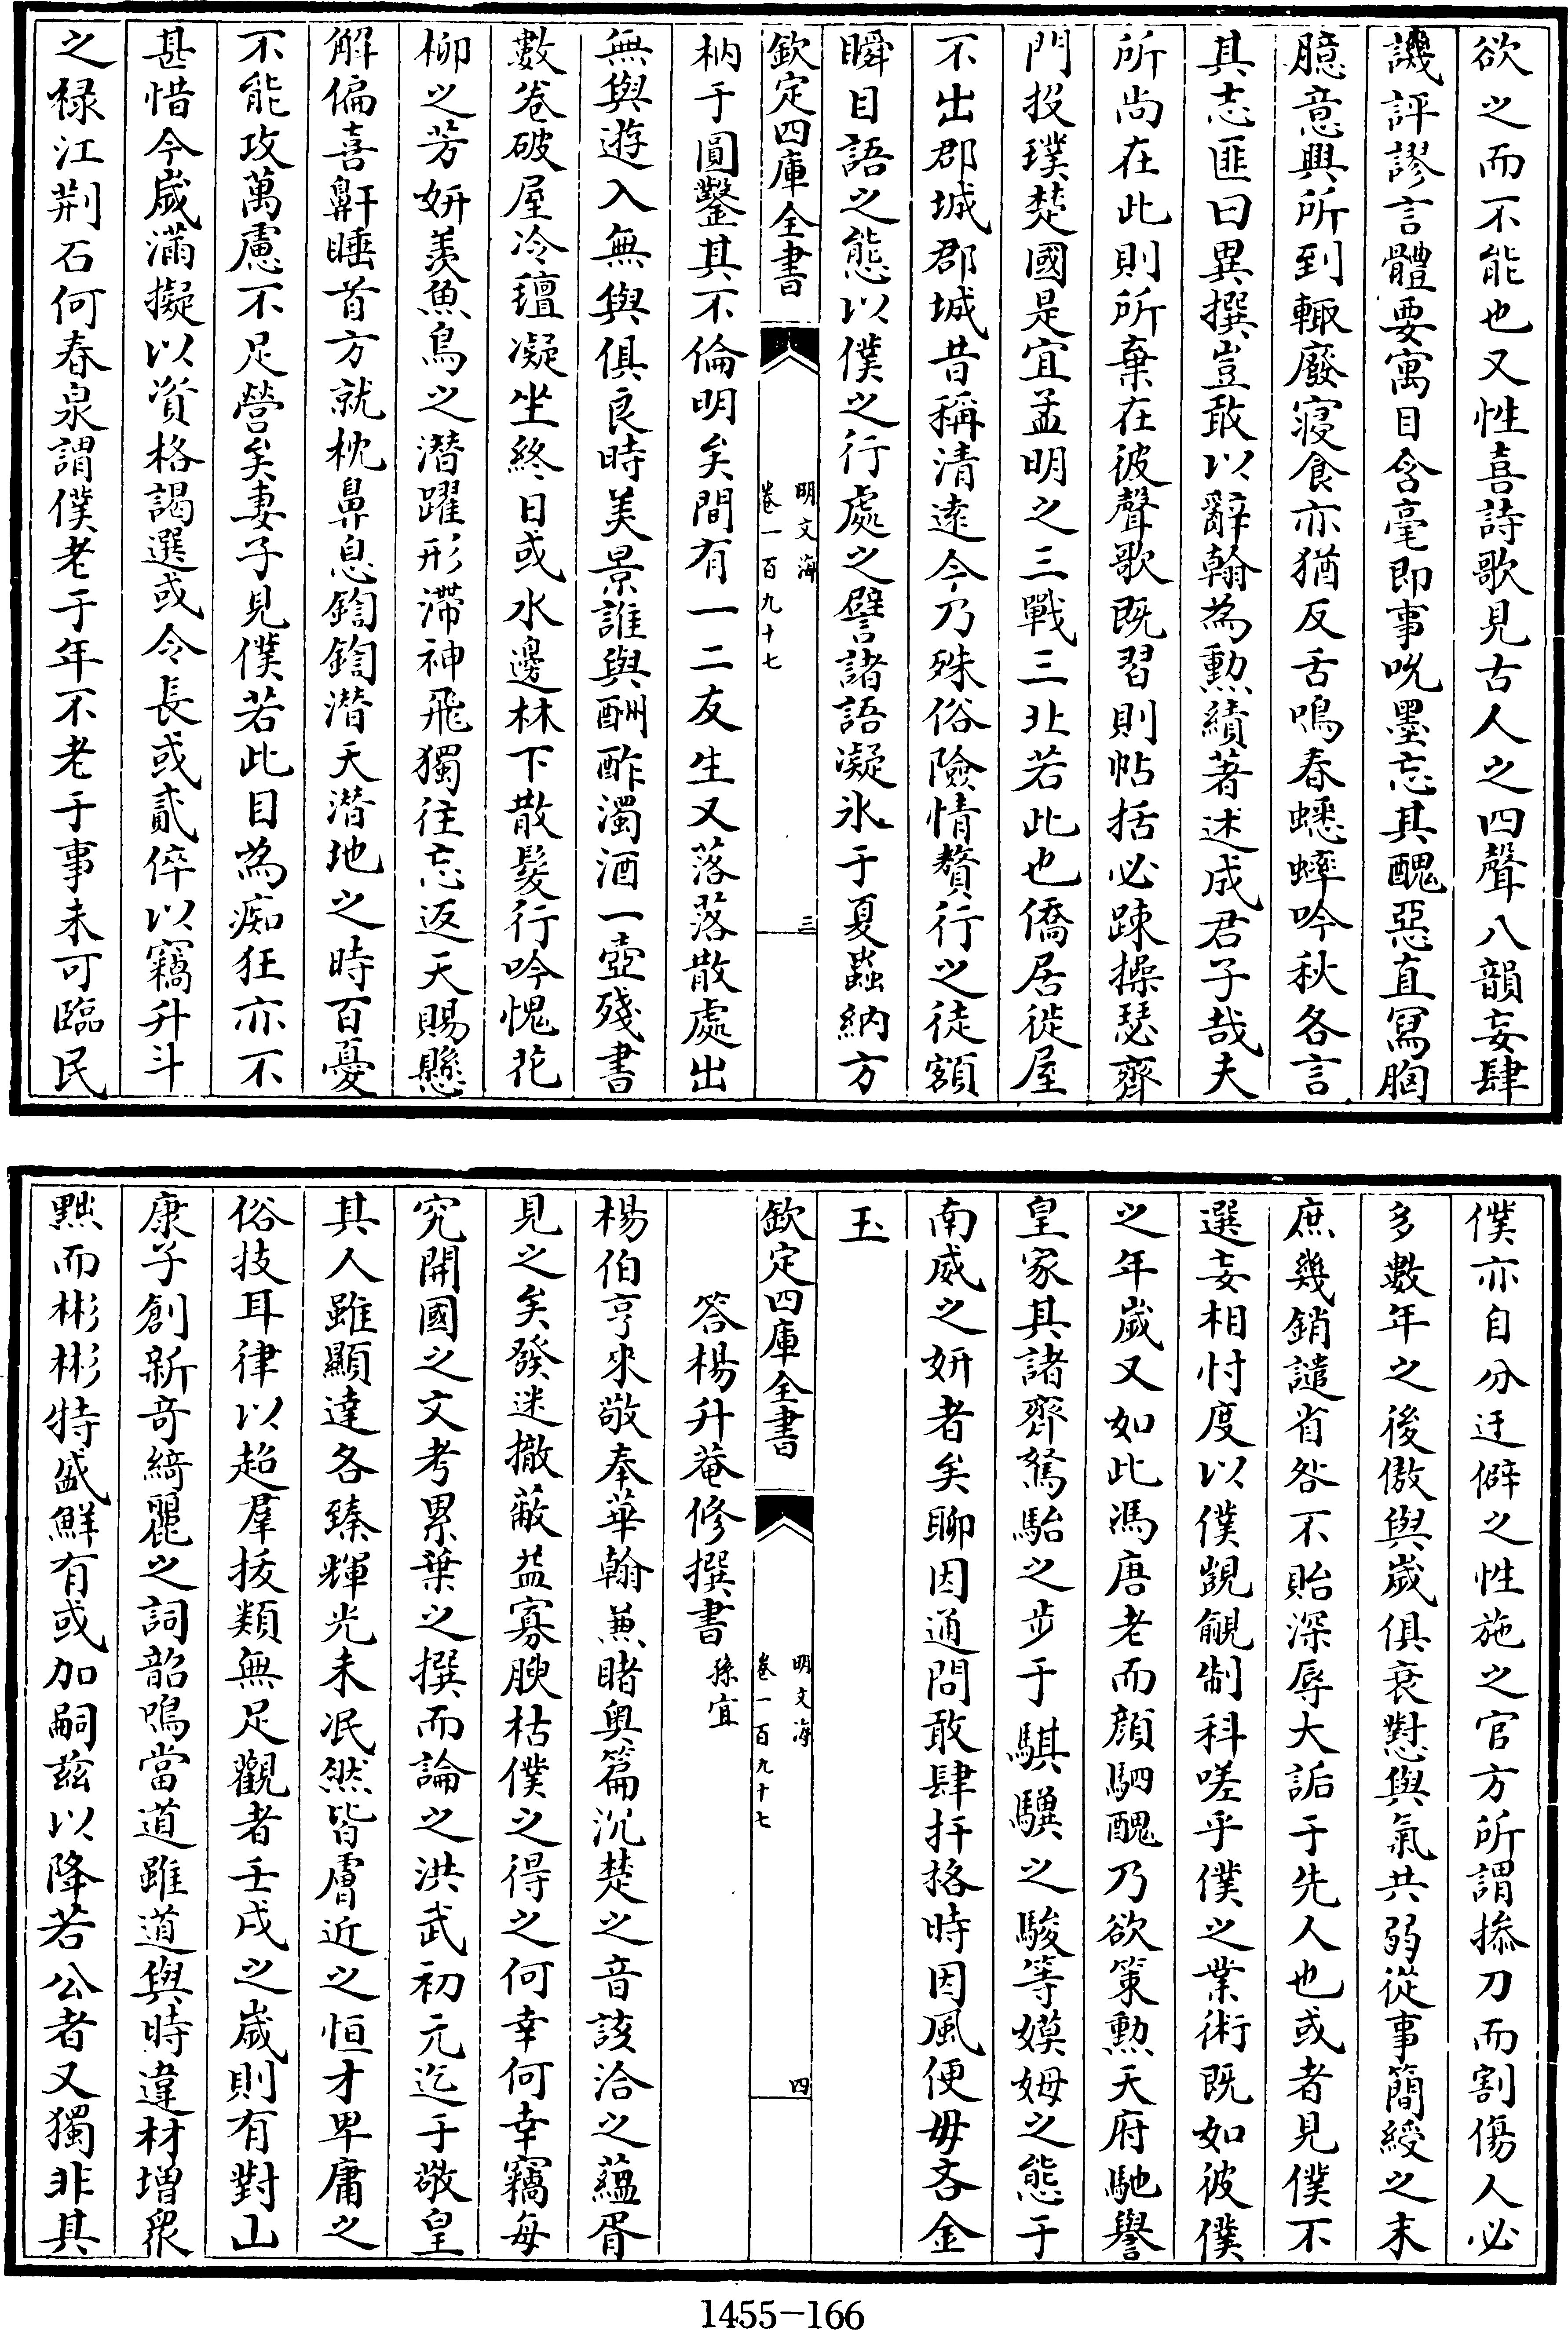 欲之而不能也又性喜詩歌見古人之四聲八韻妄肆
譏評謬言體要寓目含毫即事吮墨忘其醜惡直寫胸
臆意興所到輙廢寢食亦猶反舌鳴春蟋蟀吟秋各言
其志匪曰異撰豈敢以辭翰為勲績著述成君子哉夫
所尚在此則所棄在彼聲歌既習則帖括必踈操瑟齊
門投璞楚國是宜孟明之三戰三北若此也僑居徙屋
不出郡城郡城昔稱清遠今乃殊俗險情贅行之徒額
瞬目語之態以僕之行處之譬諸語凝氷于夏蟲納方
欽定四庫全書
明文海
卷一百九十七
三
枘于圓鑿其不倫明矣間有一二友生又落落散處出
無與遊入無與俱良時美景誰與酬酢濁酒一壺殘書
數卷破屋冷氊凝坐終日或水邊林下散髮行吟愧花
柳之芳妍羨魚鳥之潛躍形滯神飛獨往忘返天賜懸
解偏喜鼾睡首方就枕鼻息鍧鍧潛天潛地之時百憂
不能攻萬慮不足營矣妻子見僕若此目為痴狂亦不
甚惜今歲滿擬以資格謁選或令長或貳倅以竊升斗
之禄江荆石何春泉謂僕老于年不老于事未可臨民
僕亦自分迂僻之性施之官方所謂掭刀而割傷人必
多數年之後傲與歲俱衰懟與氣共弱從事簡綬之末
庶幾銷譴省咎不貽深辱大詬于先人也或者見僕不
選妄相忖度以僕覬覦制科嗟乎僕之業術既如彼僕
之年歲又如此馮唐老而顔駟醜乃欲策勲天府馳譽
皇家其諸齊駑駘之步于騏驥之駿等嫫姆之態于
南威之妍者矣聊因通問敢肆扞格時因風便毋吝金
玉
欽定四庫全書
明文海
卷一百九十七
四
答楊升菴修撰書 孫宜
楊伯亨來敬奉華翰兼睹奥篇沉楚之音該洽之蘊胥
見之矣發迷撤蔽益寡腴枯僕之得之何幸何幸竊每
究開國之文考累葉之撰而論之洪武初元迄于敬皇
其人雖顯達各臻輝光未泯然皆膚近之恒才卑庸之
俗技耳律以超羣拔類無足觀者壬戌之歲則有對山
康子創新竒綺麗之詞韶鳴當道雖道與時違材增衆
㸃而彬彬特盛鮮有或加嗣兹以降若公者又獨非具
1455-166